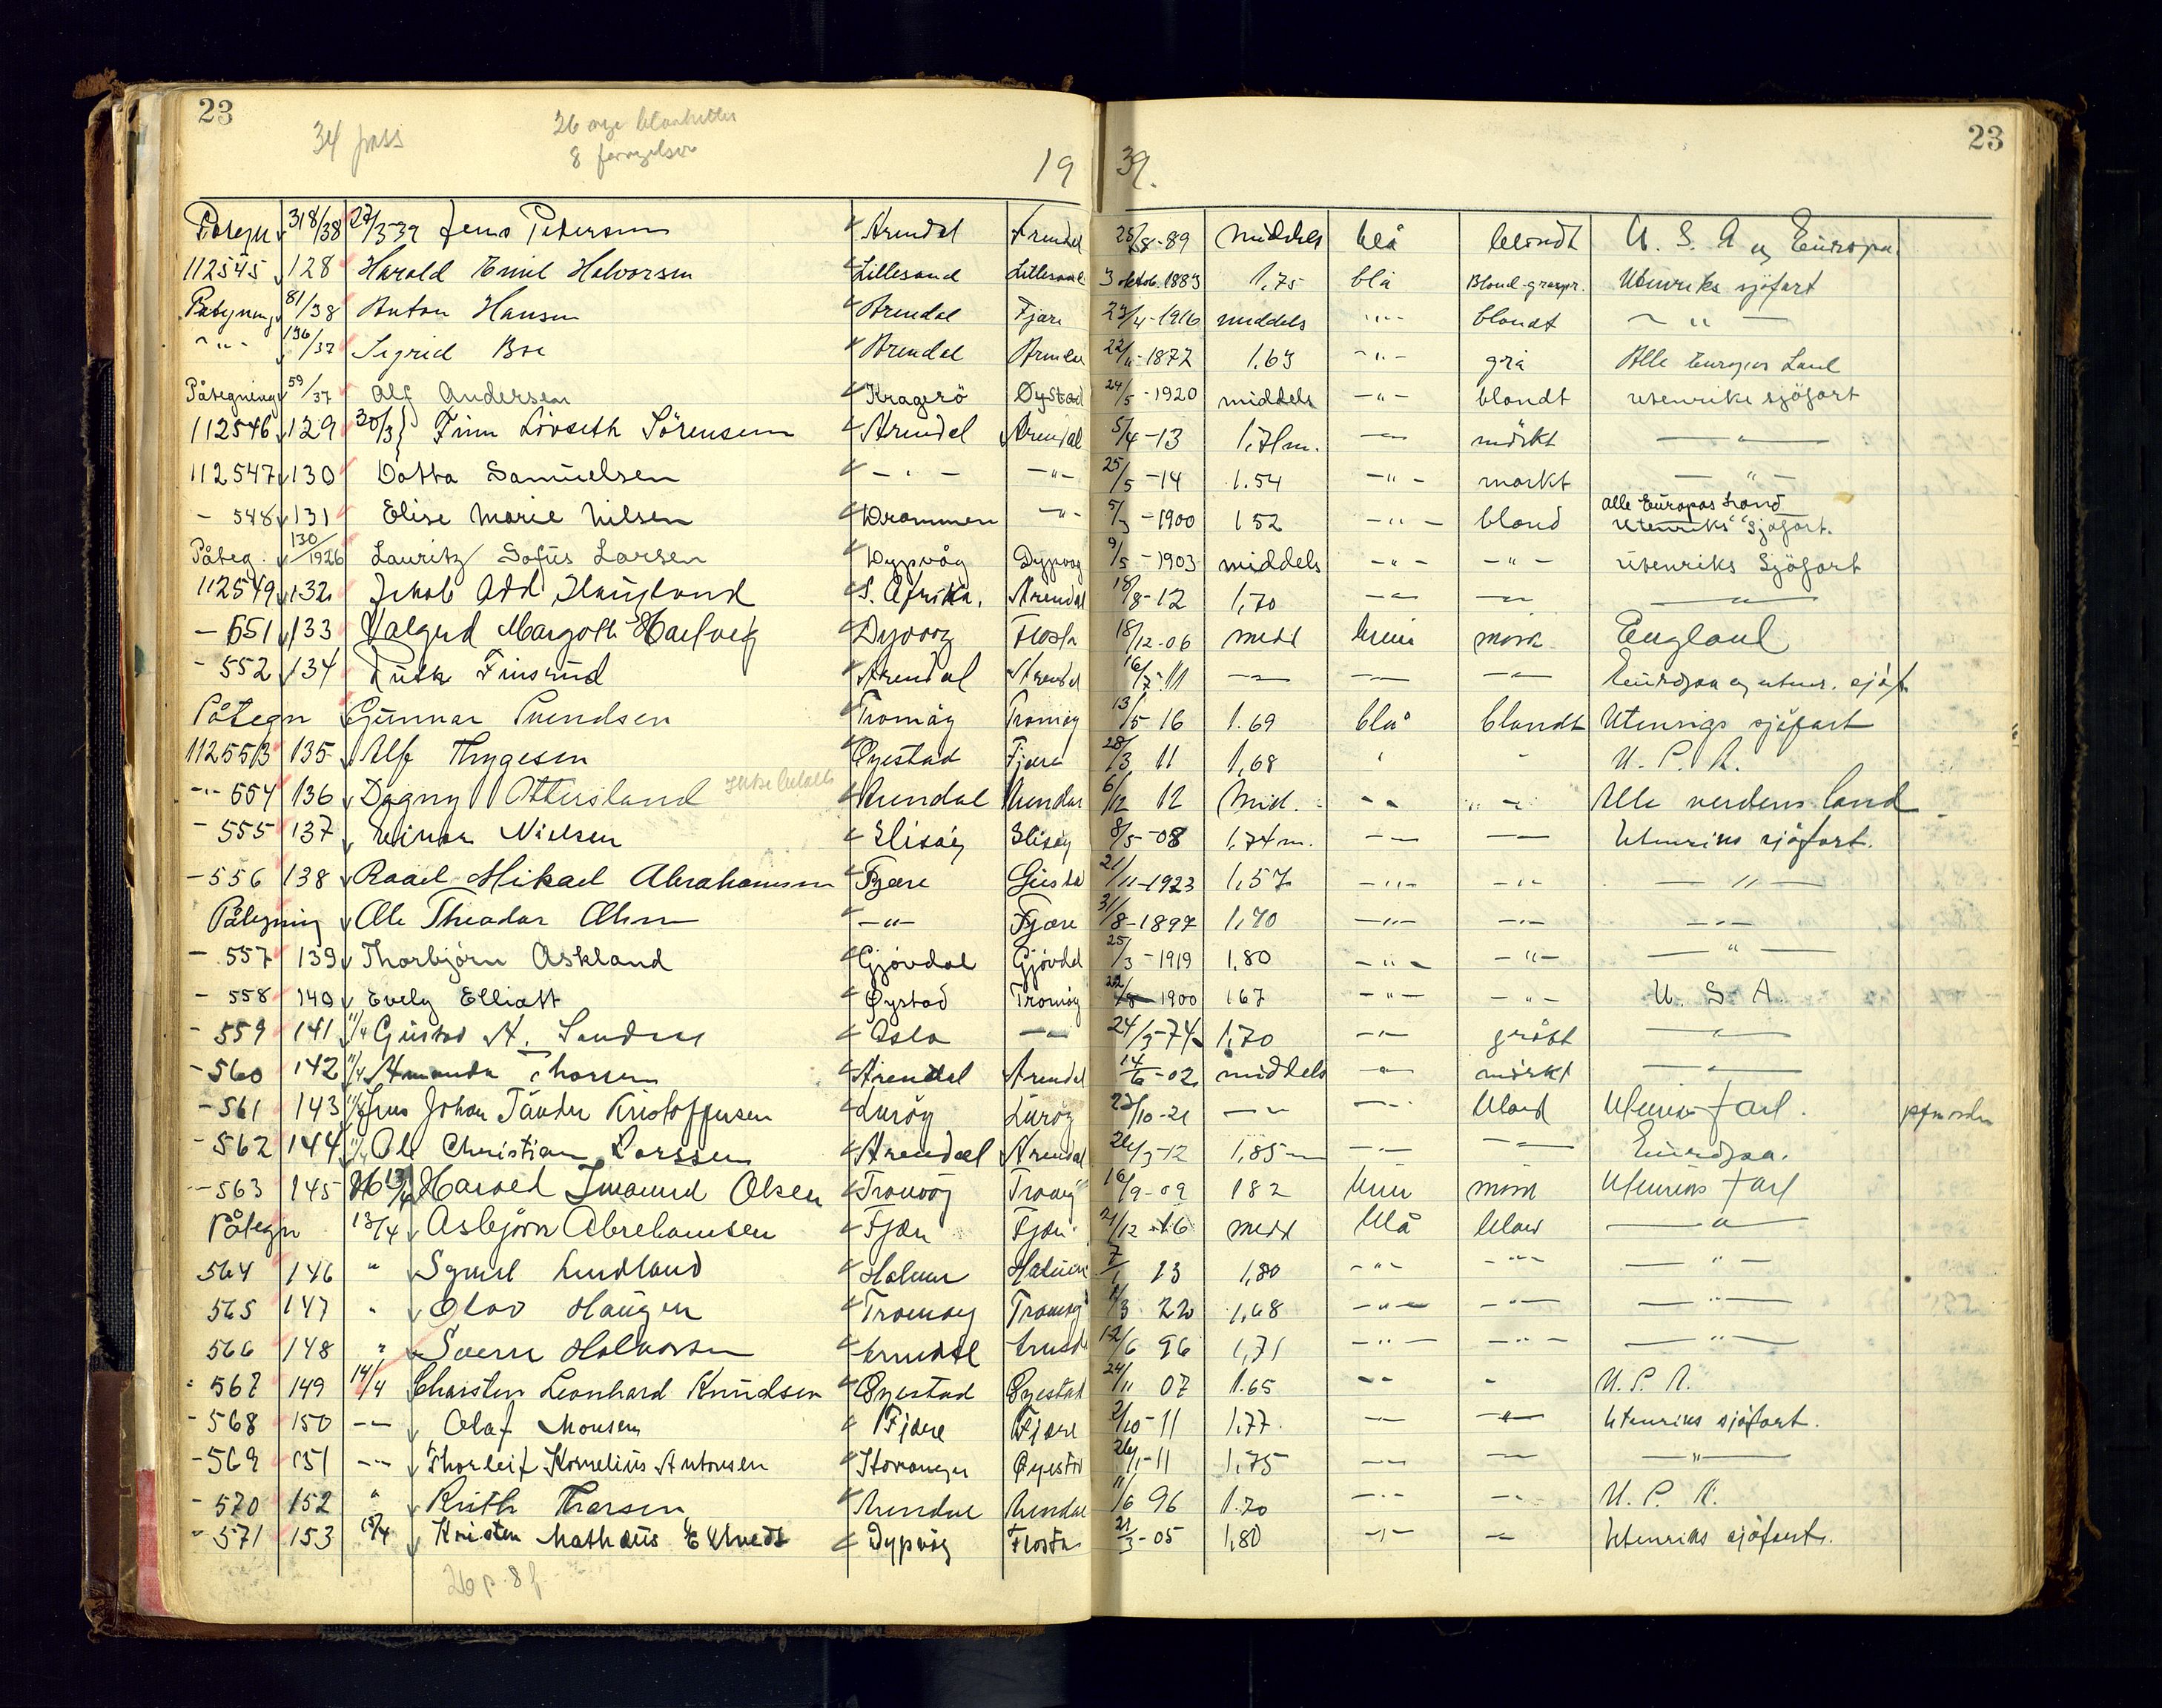 23 23
34 pass 26 nye blanketter
8 fornyelser
19 39.
Påtegn 318/38 27/3-39 Jens Petersen Arendal Arendal 25/8-89 middels blå blondt U. S. A og Europa.
112545 128 Harald Emil Halvorsen Lillesand Lillesand 3 oktob. 1883 1,75 blå Blond-gråspr. Utenriks sjøfart
Påtegning 81/38 Anton Hansen Arendal Fjære 23/4-1916 middels -"- blondt - " -
- " - 196/37 Sigrid Boe Arendal Arendal 22/11-1872 1.63 -"- grå Alle Europas Land
Påtegning 59/37 Alf Andersen Kragerö Öystad 24/5-1920 middels -"- blondt utenriks sjöfart
112546 129 30/3 Finn Lövseth Sörensen Arendal Arendal 5/4-13 1,71m. -"- mörkt -"-
112547 130 Dotta Samuelsen -"- -"- 25/5-14 1.54 -"- mörkt -"-
- 548 131 Elise Marie Nilsen Drammen -"- 5/3-1900 152 -"- blond alle Europas Land
utenriks sjöfart.
Påteg. 130/1926 Lauritz Sofus Larsen Dypvåg Dypvåg 9/5-1903 middels -"- -"- utenriks Sjöfart
112549 132 Jakob Add Haugland S. Afrika. Arendal 18/8-12 1,70 -"- -"- -"-
- 551 133 Valgerd Margoth Hartveig Dypvåg Flosta 18/12-06 midd brun mörk England
- 552 134 Ruth Finsrud Arendal Arendal 16/7-11 -"- -"- -"- Europa og utenr. sjöf
Påtegn Gunnar Svendsen Tromöy Tromöy 13/5-16 1.69 blå blondt Utenrigs sjöfart
112553 135 Alf Thygesen Öyestad Fjære 28/3 11 1,68 " " U. S. A.
-"- 554 136 Dagny Ottersland Ikke betalt Arendal Arendal 6/12 12 Mid. -"- -"- Alle verdens land
- 555 137 Einar Nielsen Hisöy Hisöy 8/5-08 1,74m. -"- -"- Utenriks sjöfart.
- 556 138 Raael Mikael Abrahamsen Fjære 21/11-1923 1,57 -"- -"- -"-
Påtegning Ole Theodor Olsen -"- Fjære 31/8-1897 1,70 -"- -"- -"-
- 557 139 Thorbjörn Askland Gjövdal Gjövdal 25/3-1919 1,80 -"- -"- -"-
- 558 140 Evely Elliott Öystad Tromöy 22/8 1900 167 -"- -"- U. S A.
- 559 141 11/4 Gustav A. Oslo -"- 24/3-74 1,70 -"- grått -"-
- 560 142 11/4 Amanda Thorsen Arendal Arendal 14/6-02 middels -"- mörkt -"-
- 561 143 11/4 Jens Johan Kristoffersen Luröy Luröy 23/10-21 -"- -"- blond Utenriks fart.
- 562 144 11/4 Ole Christian Larssen Arendal Arendal 26/3-12 1,85m -"- -"- Europa.
- 563 145 13/4 Harald Ingmund Olsen Tromöy Tromöy 16/9-09 182 brun mörk Utenriks fart
Påtegn 13/4 Asbjörn Abrahamsen Fjære Fjære 21/12-16 midd blå blond -"-
564 146 " Sigurd Lindland Holum Holum 7/1 13 1,80 -"- -"- -"-
565 147 " Olav Haugen Tromöy Tromöy 22 1,68 -"- -"- -"-
566 148 " Sverre Halvorsen Arendal Arendal 12/6 96 1,71 -"- -"- -"-
567 149 14/4 Charsten Leonhard Knudsen Öyestad Öyestad 24/11 07 1.65 -"- " U. S. A.
- 568 150 -"- Olaf Monsen Fjære Fjære 2/10-11 1,77. -"- -"- Utenriks sjöfart.
- 569 151 -"- Thorleif Kornelius Antonsen Stavanger Öyestad 26/1-11 1,75 -"- -"- -"-
- 570 152 " Ruth Thorsen Arendal Arendal 11/6 96 1.70 -"- -"- U. S. A.
- 571 153 15/4 Kristen Mathæus Eltvedt Dypvåg Flosta 21/3-05 1,80 -"- -"- Utenriks sjöfart.
26 p. 8 f.